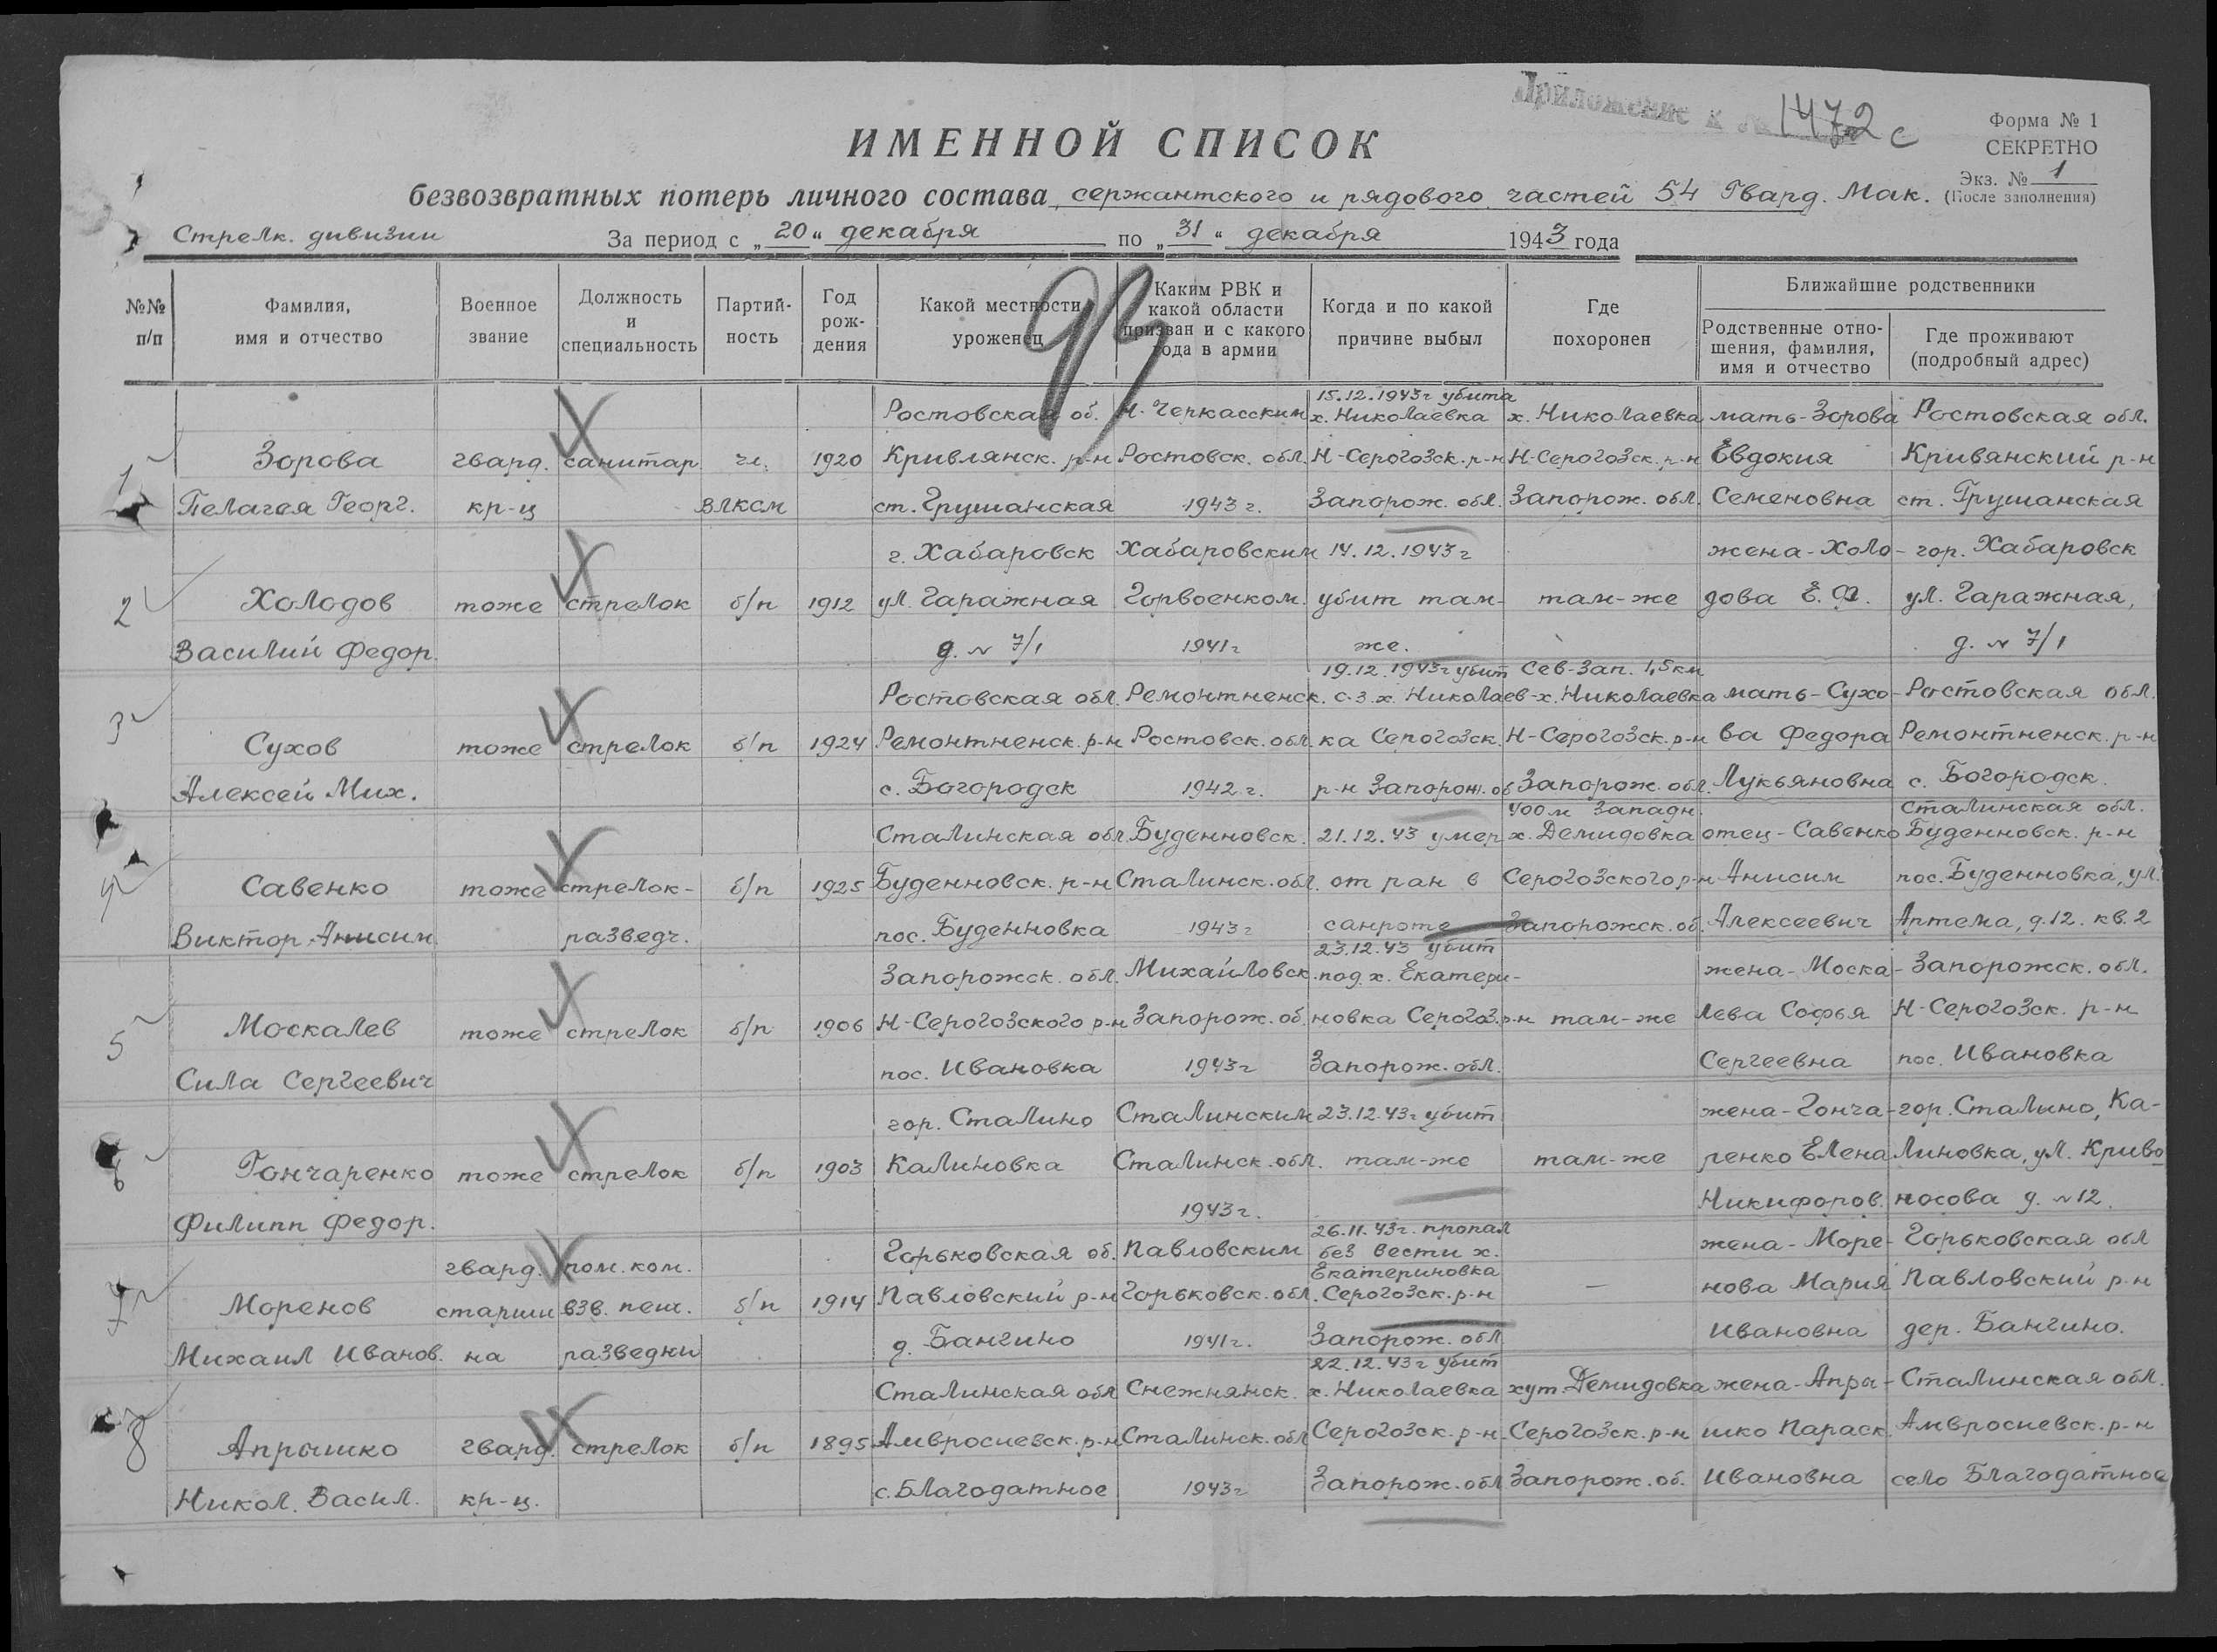 Приложение к № 1472 с
Форма № 1
СЕКРЕТНО
Экз. № 1
(После заполнения)
ИМЕННОЙ СПИСОК
безвозвратных потерь личного состава сержантского и рядового частей 54 Гвард. Мак.
Стрелк. дивизии За период с „20“ декабря по „31“ декабря 1943 года
№№ п/п
Фамилия, имя и отчество
Военное звание
Должность и специальность
Партий-ность
Год рож-дения
Какой местности уроженец
Каким РВК и какой области призван и с какого года в армии
Когда и по какой причине выбыл
Где похоронен
Ближайшие родственники
Родственные отно-шения, фамилия, имя и отчество
Где проживают (подробный адрес)
15.12.1943г убита
Ростовская об. Н-Черкасским х. Николаевка х. Николаевка мать-Зорова Ростовская обл.
1 Зорова гвард. санитар чл. 1920 Кривлянск. р-н Ростовск. обл. Н-Серогозск. р-н Н-Серогозск. р-н Евдокия Кривянский р-н
Пелагея Георг. кр-ц ВЛКСМ ст. Грушанская 1943 г. Запорож. обл. Запорож. обл. Семеновна ст. Грушанская
г. Хабаровск Хабаровским 14.12.1943г жена-Холо- гор. Хабаровск
2 Холодов тоже стрелок б/п 1912 ул. Гаражная Горвоенком. убит там- там-же дова Е.Ф. ул. Гаражная,
Василий Федор. д. № 7/1 1941г же. д. № 7/1
19.12.1943г убит Сев-Зап. 1,5 км
Ростовская обл. Ремонтненск. с-з. х. Николаев- х. Николаевка мать-Сухо- Ростовская обл.
3 Сухов тоже стрелок б/п 1924 Ремонтненск. р-н Ростовск. обл. ка Серогозск. Н-Серогозск. р-н ва Федора Ремонтненск. р-н
Алексей Мих. с. Богородск 1942 г. р-н Запорож. об Запорож. обл. Лукьяновна с. Богородск.
400м Западн. Сталинская обл.
Сталинская обл. Буденновск. 21.12.43 умер х. Демидовка отец-Савенко Буденновск. р-н
4 Савенко тоже стрелок- б/п 1925 Буденновск. р-н Сталинск. обл. от ран в Серогозского р-н Анисим пос. Буденновка, ул.
Виктор Анисим. разведч. пос. Буденновка 1943г санроте Запорожск. об. Алексеевич Артема, д.12. кв.2
23.12.43 убит
Запорожск. обл. Михайловск. под х. Екатери- жена-Моска- Запорожск. обл.
5 Москалев тоже стрелок б/п 1906 Н-Серогозского р-н Запорож. об. новка Серогоз. р-н там-же лева Софья Н-Серогозск. р-н
Сила Сергеевич пос. Ивановка 1943г Запорож. обл. Сергеевна пос. Ивановка
гор. Сталино Сталинским 23.12.43г убит жена-Гонча- гор. Сталино, Ка-
6 Гончаренко тоже стрелок б/п 1903 Калиновка Сталинск. обл. там-же там-же ренко Елена линовка, ул. Криво
Филипп Федор. 1943г. Никифоров. носова д. №12.
26.11.43г. пропал
Горьковская об. Павловским без вести х. жена-Море- Горьковская обл
гвард. пом. ком. Екатериновка
7 Моренов старши взв. пеш. б/п 1914 Павловский р-н Горьковск. обл. Серогозск. р-н — нова Мария Павловский р-н
Михаил Иванов. на разведки д. Бангино 1941г. Запорож. обл Ивановна дер. Бангино.
22.12.43г убит
Сталинская обл Снежнянск. х. Николаевка хут. Демидовка жена-Апры- Сталинская обл.
8 Апрышко гвард. стрелок б/п 1895 Амвросиевск. р-н Сталинск. обл Серогозск. р-н Серогозск. р-н шко Параск. Амвросиевск. р-н
Никол. Васил. кр-ц. с. Благодатное 1943г Запорож. обл Запорож. об. Ивановна село Благодатное